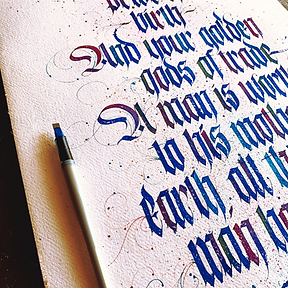 burn
And your golden
gods of trade
A man is wor
to his mothe
earth, all th
man h